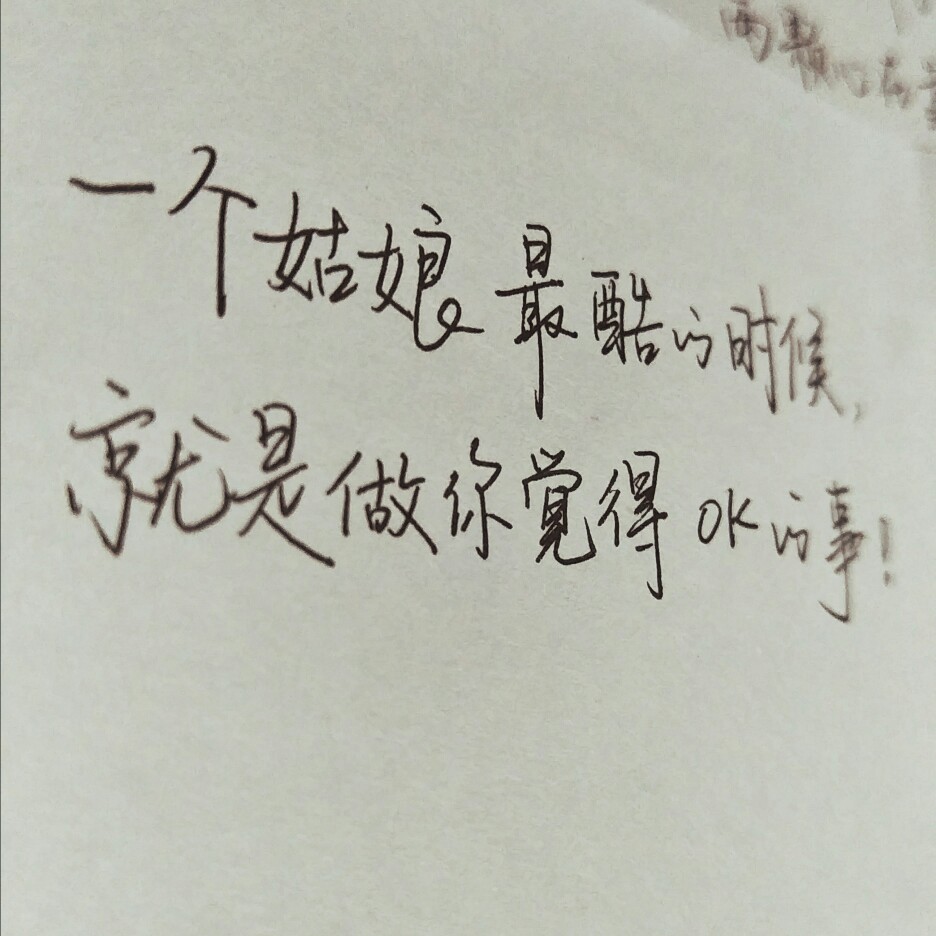 一个姑娘最酷的时候,
就是做你觉得OK的事!